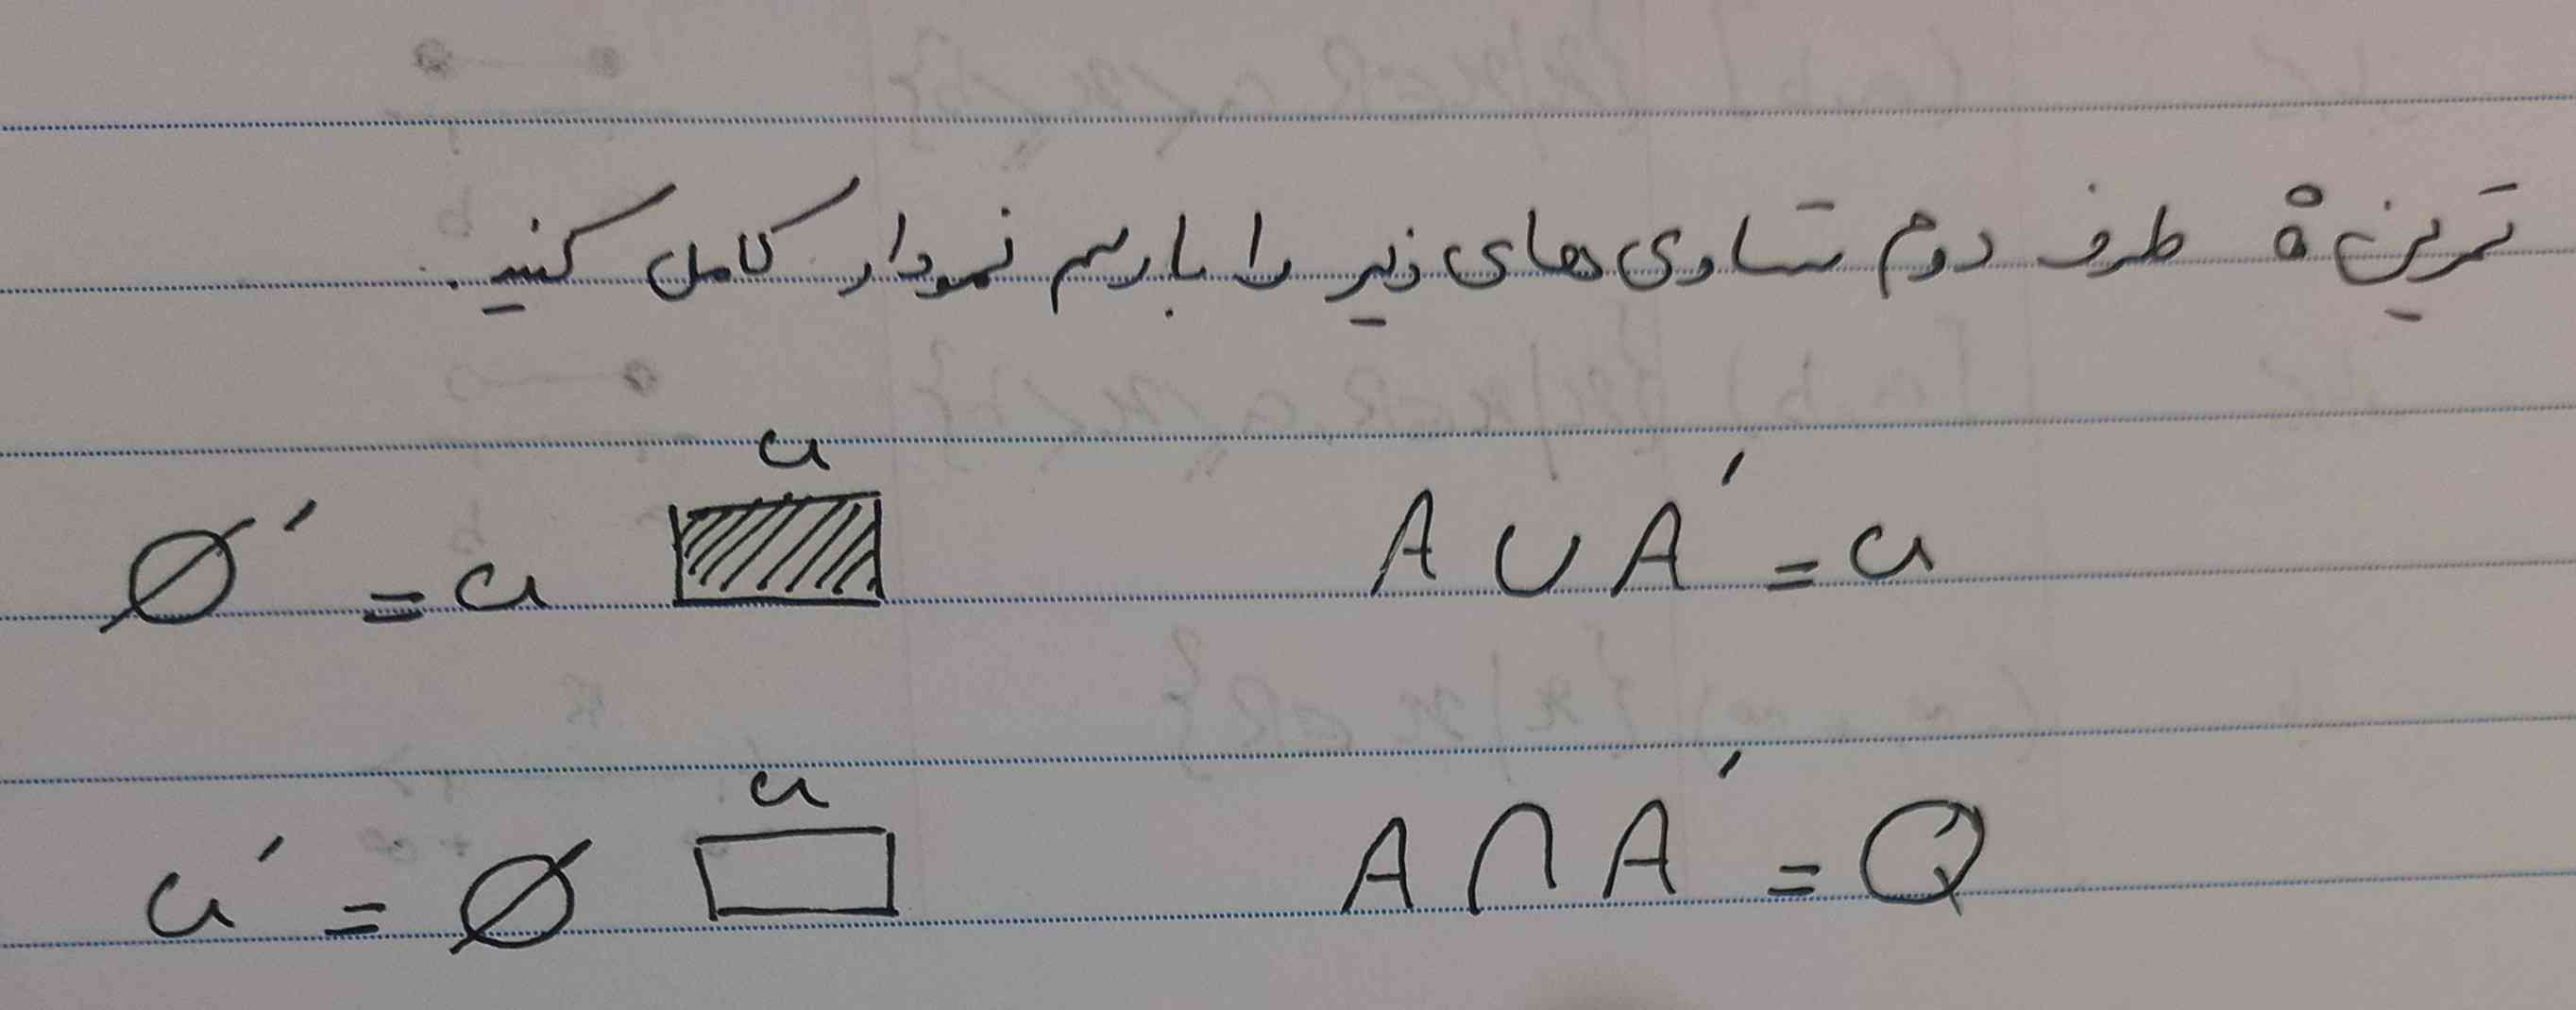 تمرین: طرف دوم تساوی های زیر را با رسم نمودار کامل کنید.
Ø′ = u u A ∪ A′ = u
u′ = Ø u A ∩ A′ = Q